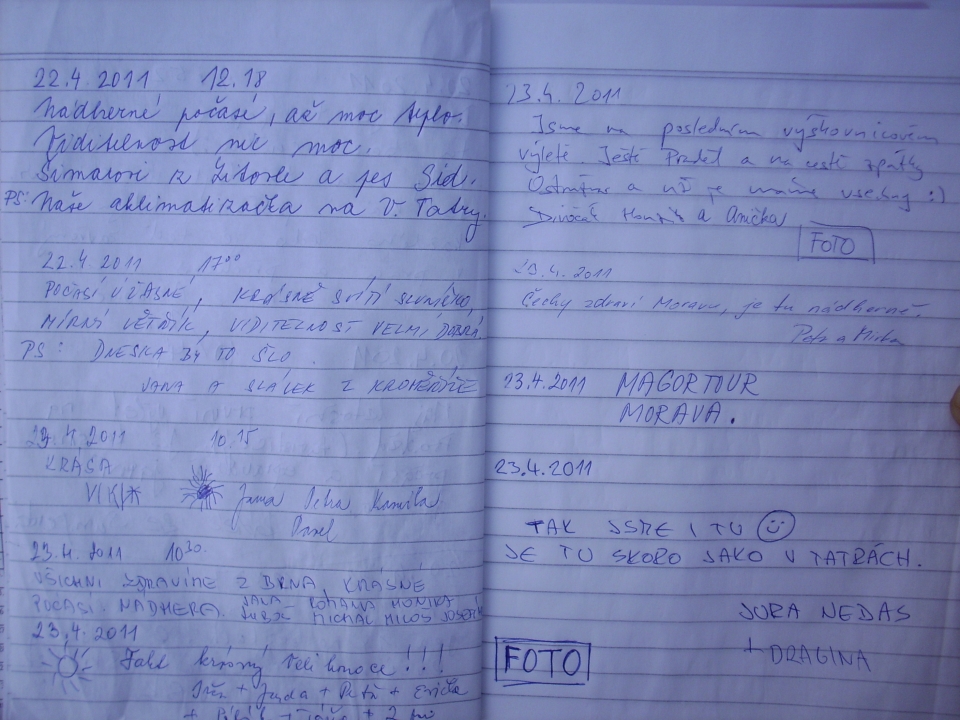 22.4.2011 12.18
Nádherné počasí, až moc teplo.
Viditelnost nic moc.
Šimarovi z Litovle a pes Sid.
PS: Naše aklimatizačka na V. Tatry.
22.4.2011 17⁰⁰
POČASÍ ÚŽASNÉ, KRÁSNĚ SVÍTÍ SLUNÍČKO,
MÍRNÝ VĚTŘÍK, VIDITELNOST VELMI DOBRÁ.
PS: DNESKA BY TO ŠLO.
JANA A SLÁVEK Z KROMĚŘÍŽE
23.4.2011 10.15
KRÁSA
Jana Petra Kamila
Pavel
23.4.2011 10³⁰
VŠICHNI ZDRAVÍME Z BRNA, KRÁSNÉ
POČASÍ. NÁDHERA. JANA ROMANA MONIKA
MICHAL MILOŠ JOSEF
23.4.2011
Fakt krásný Velikonoce!!!
+ Jarda + Petr + Evička
+ 2 psi
23.4.2011
Jsme na posledním výškovnicovém
výletě. Ještě Praděd a na cestě zpátky
a už je máme všechny :)
Divočák Honzík a Anička
FOTO
23.4.2011
Čechy zdraví Moravu, je tu nádherně.
Petr a Mirka
23.4.2011 MAGORTOUR
MORAVA.
23.4.2011
TAK JSME I TU ☺
JE TU SKORO JAKO V TATRÁCH.
JURA NEDAS
+ DRAGINA
FOTO